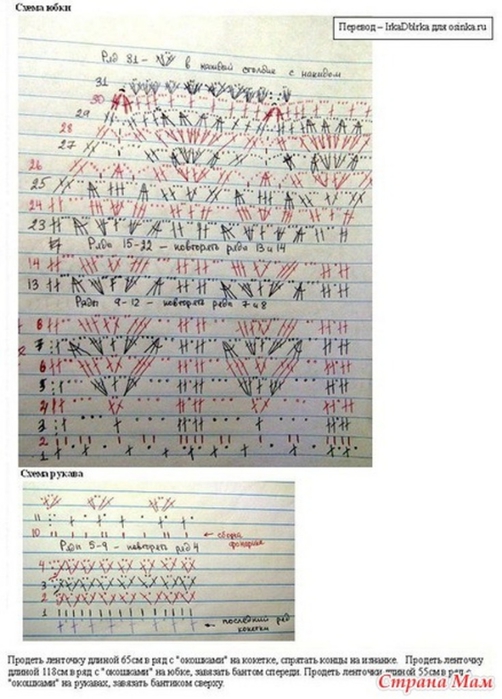 Схема юбки
Перевод – IrkaDbIrka для osinka.ru
Ряд 31 – в каждый столбик с накидом
31
30
29
28
27
26
25
24
23
Ряды 15-22 – повторять ряды 13 и 14
14
13
Ряды 9-12 – повторять ряды 7 и 8
8
7
6
5
4
3
2
1
Схема рукава
11
10
сборка фонарика
Ряды 5-9 – повторять ряд 4
4
3
2
1
последний ряд кокетки
Продеть ленточку длиной 65см в ряд с "окошками" на кокетке, спрятать концы на изнанке. Продеть ленточку
длиной 118см в ряд с "окошками" на юбке, завязать бантом спереди. Продеть ленточки длиной 55см в ряд с
"окошками" на рукавах, завязать бантиком сверху.
Страна Мам